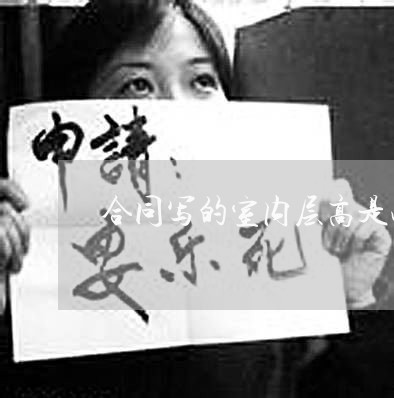 申請：
合同写的室内层高是
乐